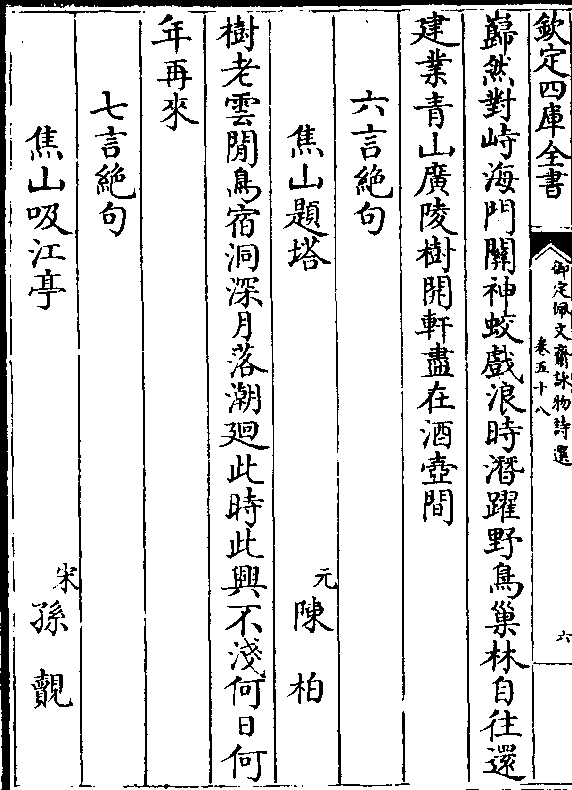 欽定四庫全書
御定佩文齋詠物詩選
卷五十八
六
巋然對峙海門關神蛟戲浪時潛躍野鳥巢林自往還
建業青山廣陵樹開軒盡在酒壺間
六言絕句
焦山題塔
元
陳柏
樹老雲閒鳥宿洞深月落潮廻此時此興不淺何日何
年再來
七言絕句
焦山吸江亭
宋
孫覿